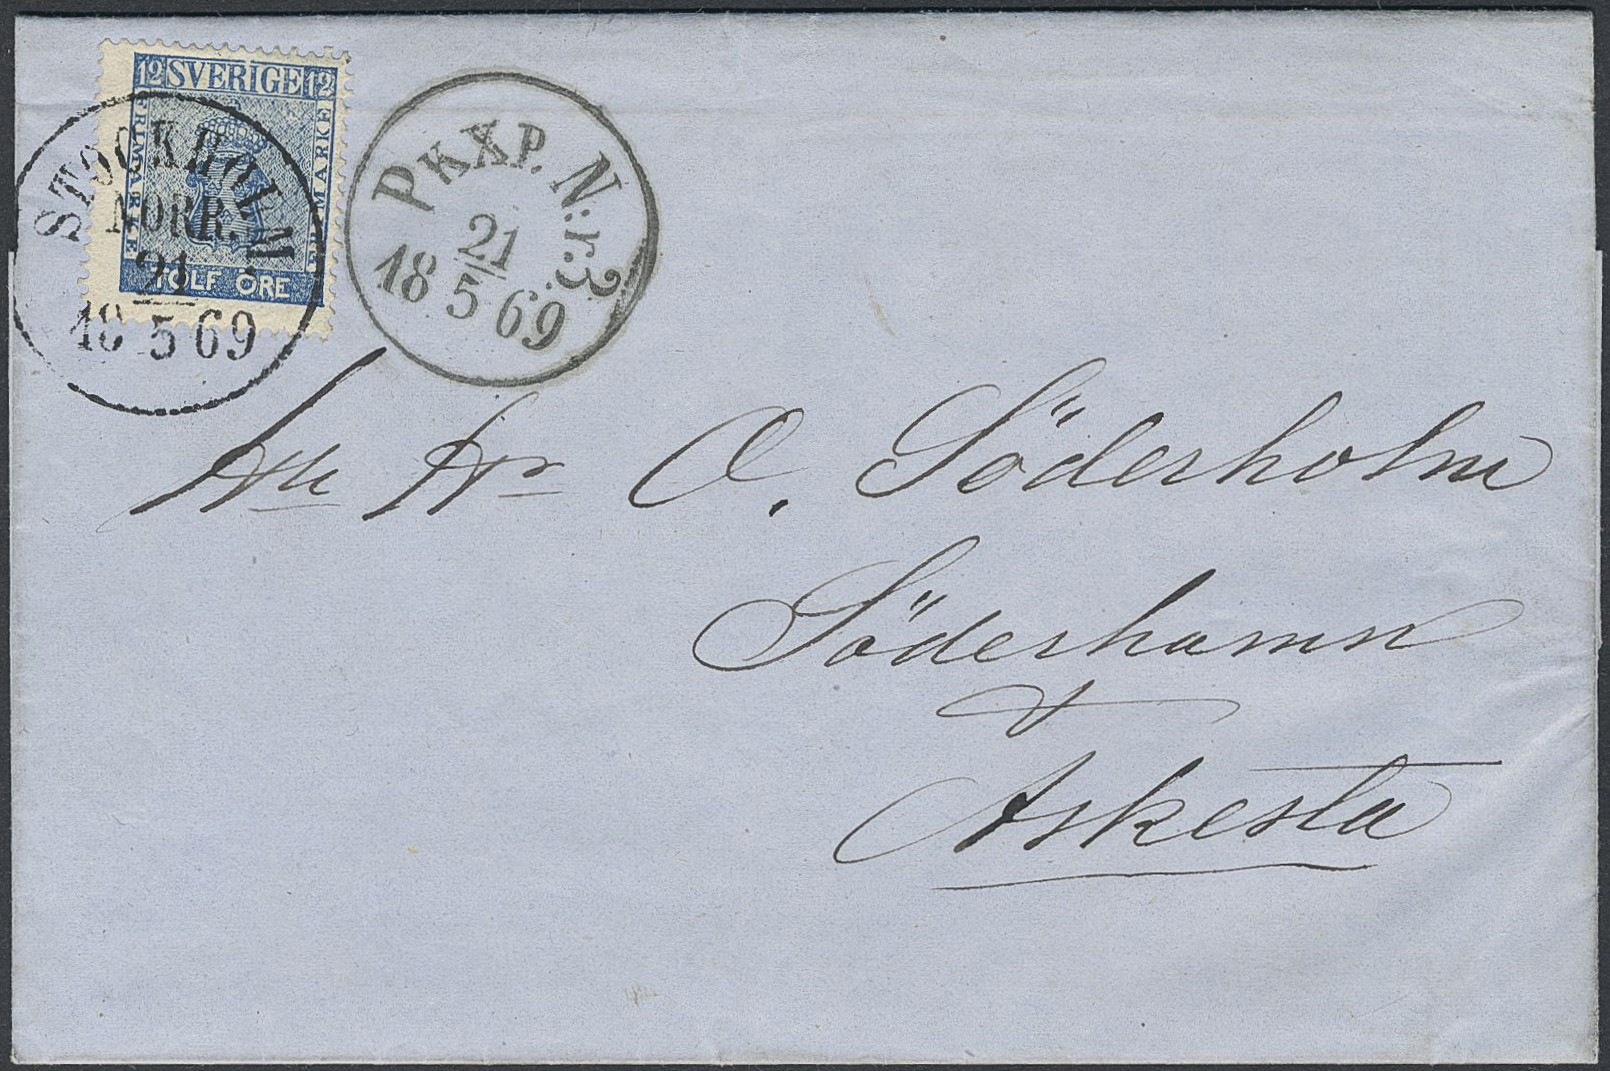 12 SVERIGE 12
FRIMÄRKE
FRIMÄRKE
TOLF ÖRE
STOCKHOLM
NORR.
21
18 5 69
PKXP. N:r 3.
21
18 5 69
Hr O. Söderholm
Söderhamn
Askesta